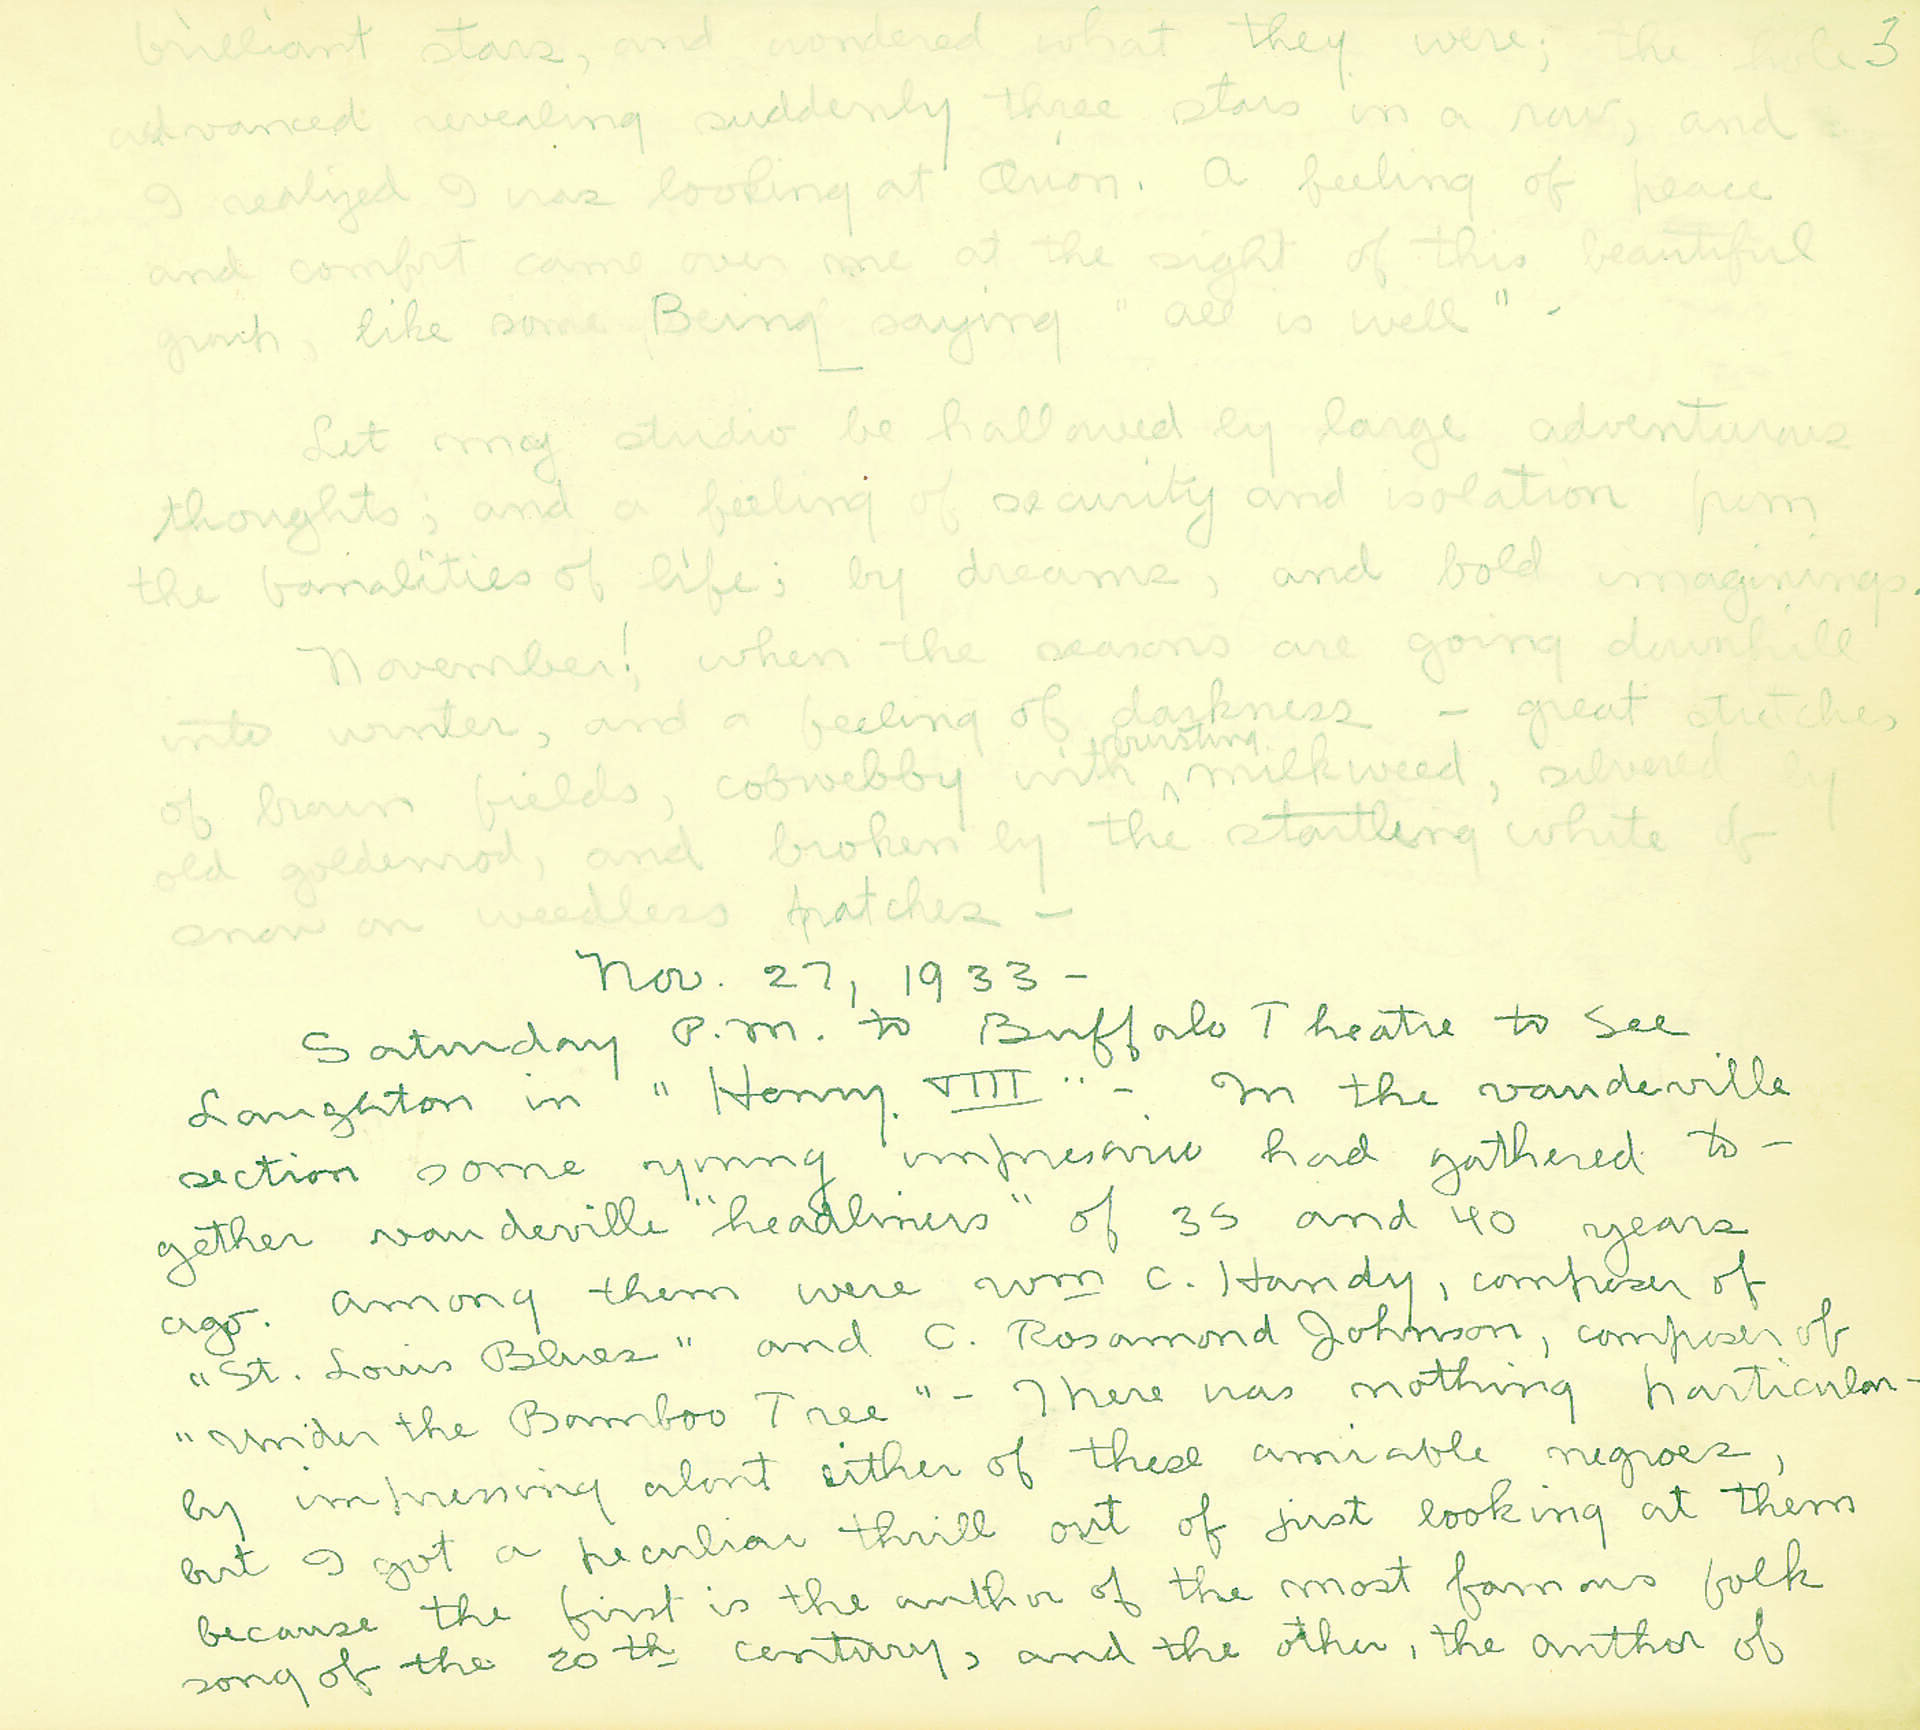 brilliant stars, and wondered what they were; the hole 3
advanced revealing suddenly three stars in a row, and
I realized I was looking at Orion. A feeling of peace
and comfort came over me at the sight of this beautiful
group, like some Being saying "all is well" -
Let my studio be hallowed by large adventurous
thoughts; and a feeling of security and isolation from
the banalities of life; by dreams, and bold imaginings.
November! when the seasons are going downhill
into winter, and a feeling of darkness - great stretches
of brown fields, cobwebby with bursting milkweed, silvered by
old goldenrod, and broken by the startling white of
snow on weedless patches -
Nov. 27, 1933 -
Saturday P.M. to Buffalo Theatre to see
Laughton in "Henry VIII" - In the vaudeville
section some young impresario had gathered to-
gether vaudeville "headliners" of 35 and 40 years
ago. Among them were Wm C. Handy, composer of
"St. Louis Blues" and C. Rosamond Johnson, composer of
"Under the Bamboo Tree" - There was nothing particular-
ly impressing about either of these amiable negroes,
but I got a peculiar thrill out of just looking at them
because the first is the author of the most famous folk
song of the 20th century, and the other, the author of